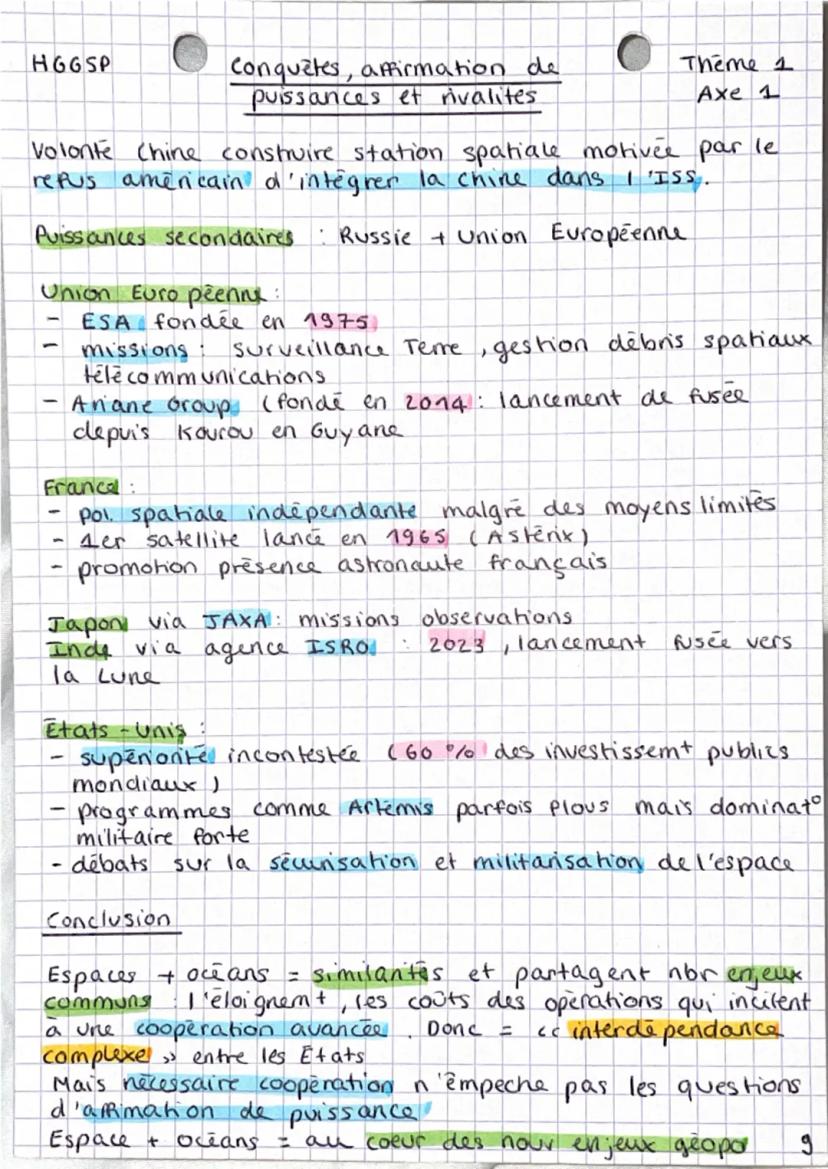 HGGSP
Conquêtes, affirmation de
puissances et rivalités
Thème 1
Axe 1
Volonté Chine construire station spatiale motivée par le
refus américain d'intégrer la chine dans l'ISS.
Puissances secondaires : Russie + Union Européenne
Union Européenne :
- ESA fondée en 1975
- missions : surveillance Terre, gestion débris spatiaux
télécommunications
- Ariane Group (fondé en 2014 : lancement de fusée
depuis Kourou en Guyane
France :
- pol. spatiale indépendante malgré des moyens limités
- 1er satellite lancé en 1965 (Astérix)
- promotion présence astronaute français
Japon via JAXA : missions observations
Inde via agence ISRO : 2023, lancement fusée vers
la Lune
États-Unis :
- supériorité incontestée (60 % des investissemt publics
mondiaux)
- programmes comme Artémis parfois flous mais dominat°
militaire forte
- débats sur la sécurisation et militarisation de l'espace
Conclusion
Espaces + océans = similarités et partagent nbr enjeux
communs : l'éloignemt, les coûts des opérations qui incitent
à une coopération avancée. Donc = « interdépendance
complexe » entre les États
Mais nécessaire coopération n'empeche pas les questions
d'affimation de puissance
Espace + océans = au coeur des nouv enjeux géopo
9